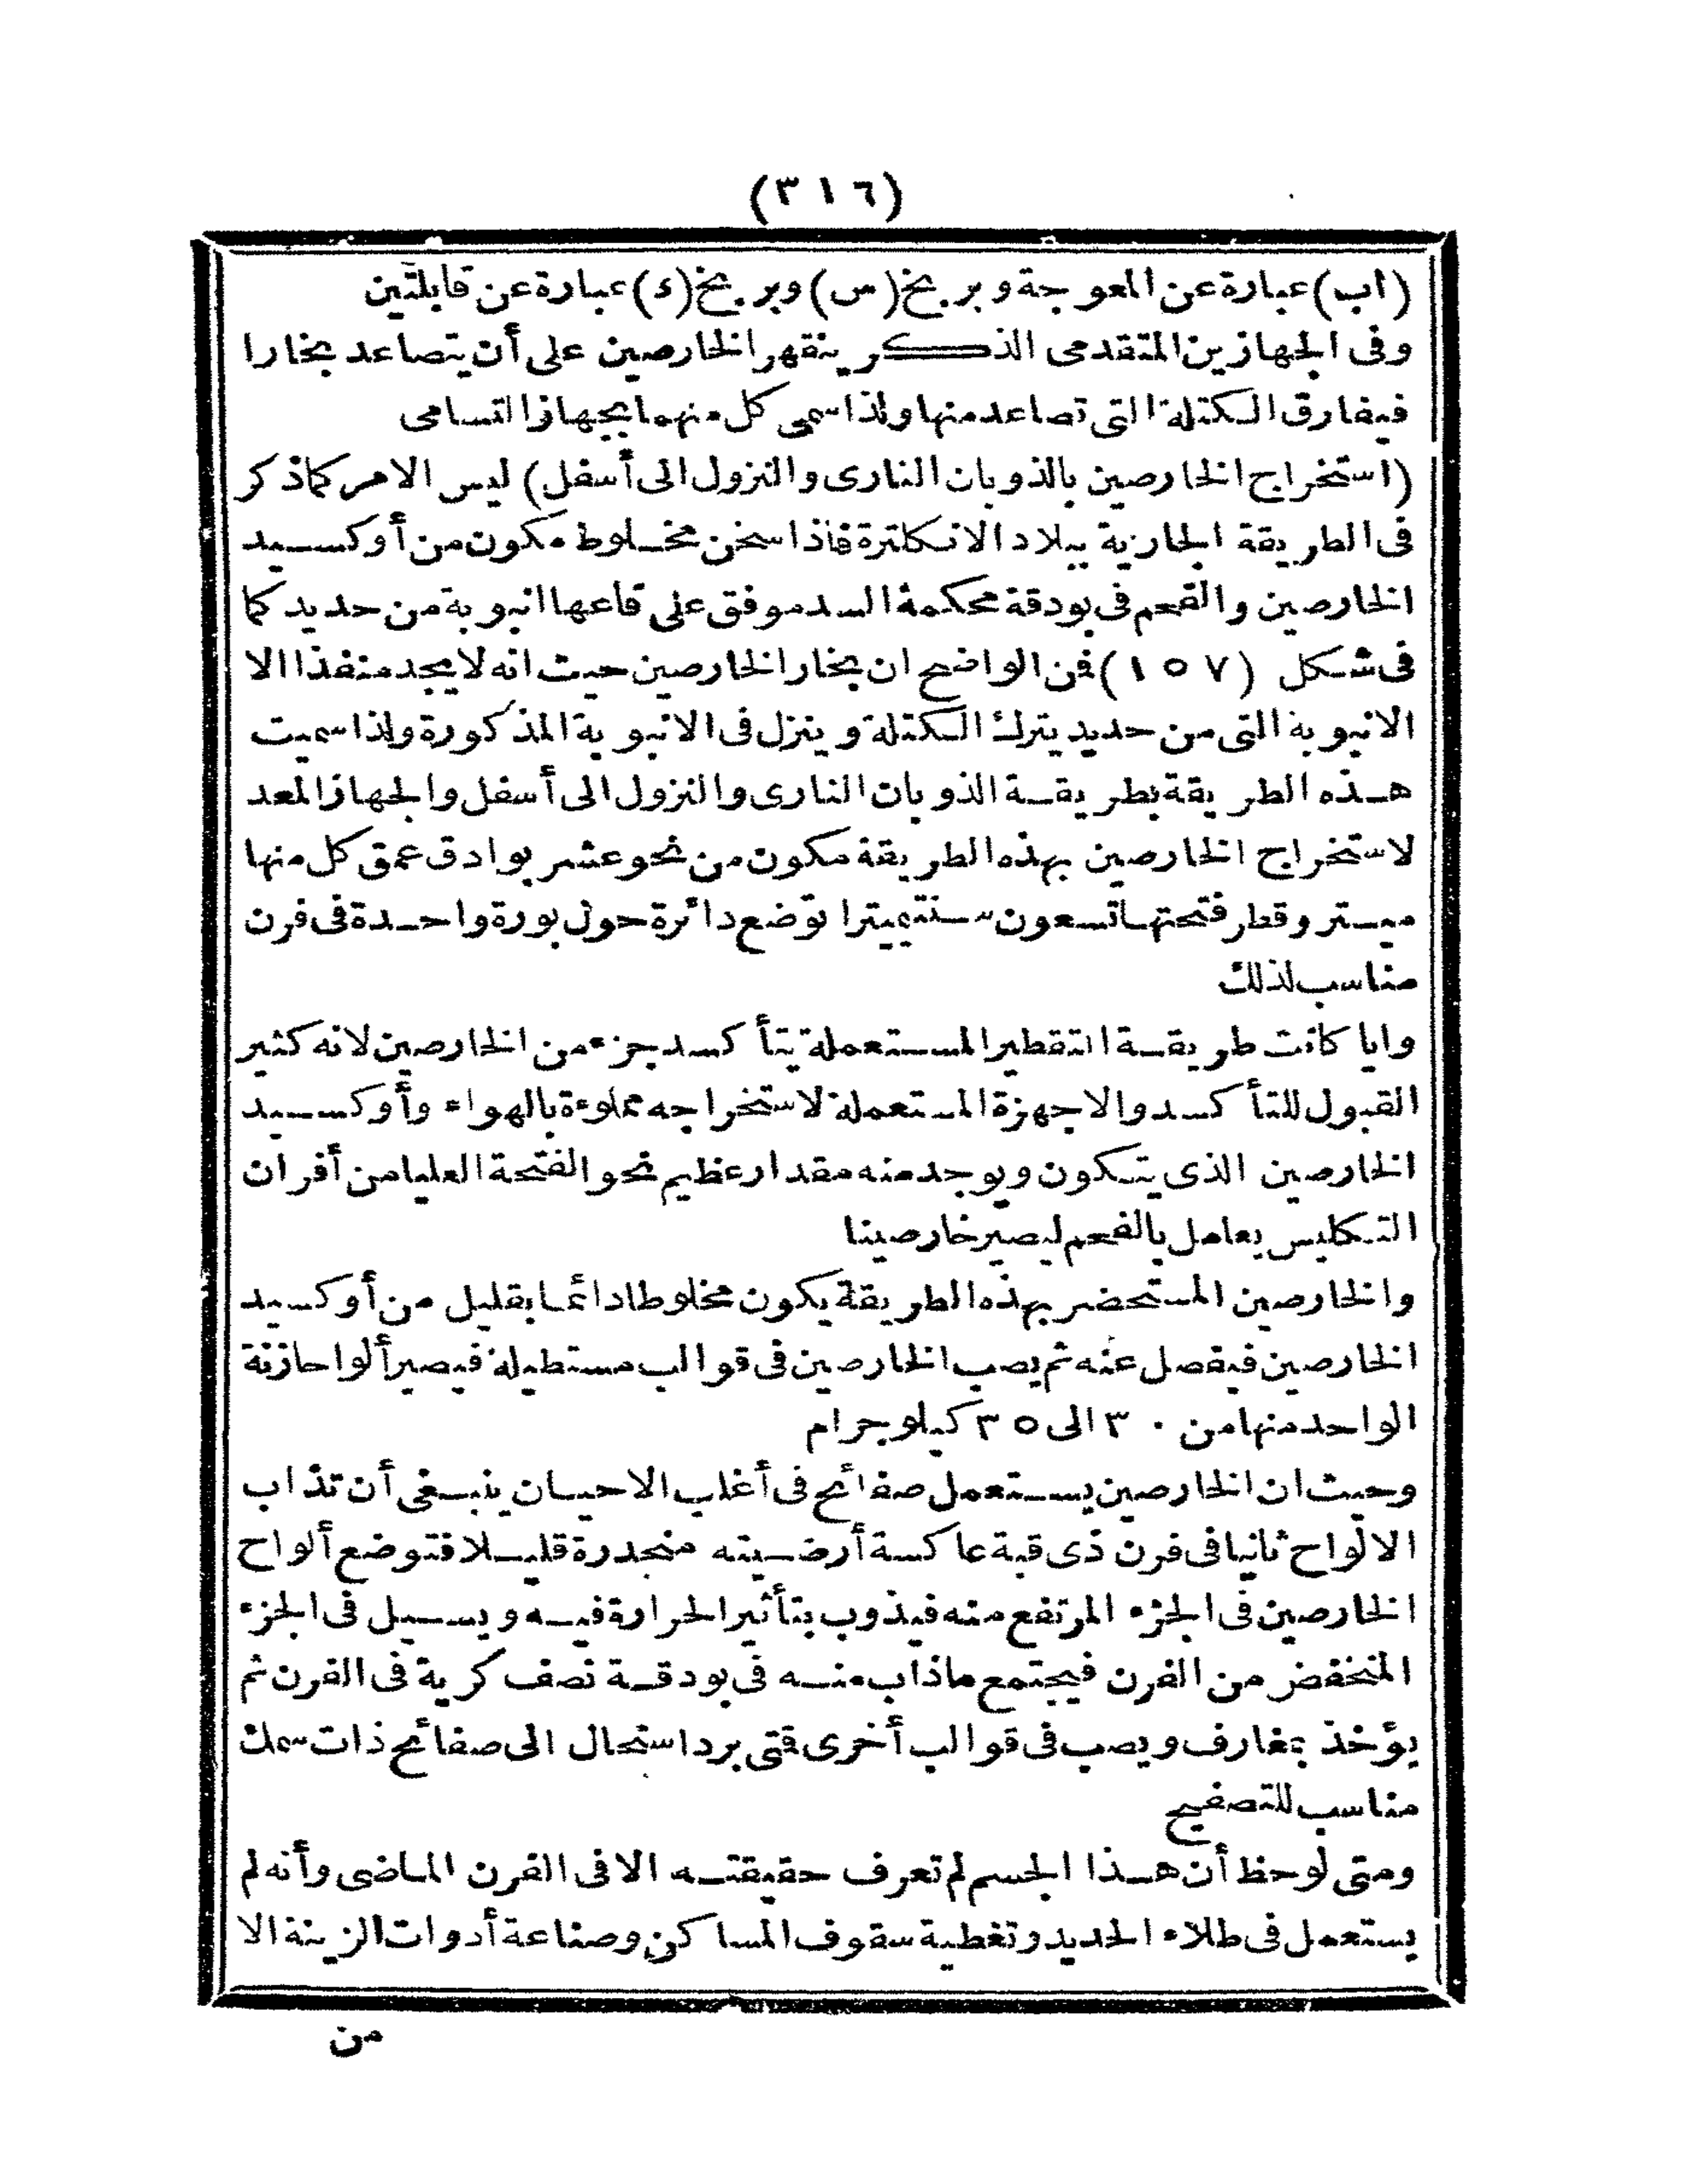 (٣١٦)
(اب) عبارة عن المعوجة وبربخ (س) وبربخ (ء) عبارة عن قابلتين
وفى الجهازين المتقدمى الذكر ينقهر الخارصين على أن يتصاعد بخارا
فيفارق الكتلة التى تصاعد منها ولذا سمى كل منهما بجهاز التسامى
(استخراج الخارصين بالذوبان النارى والنزول الى أسفل) ليس الامر كما ذكر
فى الطريقة الجارية ببلاد الانكلترة فاذا سخن مخلوط مكون من أوكسيد
الخارصين والفحم فى بودقة محكمة السد موفق على قاعها انبوبة من حديد كما
فى شكل (١٥٧) فمن الواضح ان بخار الخارصين حيث انه لا يجد منفذا الا
الانبوبة التى من حديد يترك الكتلة وينزل فى الانبوبة المذكورة ولذا سميت
هذه الطريقة بطريقة الذوبان النارى والنزول الى أسفل والجهاز المعد
لاستخراج الخارصين بهذه الطريقة مكون من نحو عشر بوادق عمق كل منها
ميتر وقطر فتحتها تسعون سنتيميترا توضع دائرة حول بورة واحدة فى فرن
مناسب لذلك
وايا كانت طريقة التقطير المستعملة يتأكسد جزء من الخارصين لانه كثير
القبول للتأكسد والاجهزة المستعملة لاستخراجه مملوءة بالهواء وأوكسيد
الخارصين الذى يتكون ويوجد منه مقدار عظيم نحو الفتحة العليا من أفران
التكليس يعامل بالفحم ليصير خارصينا
والخارصين المستحضر بهذه الطريقة يكون مخلوطا دائما بقليل من أوكسيد
الخارصين فيفصل عنه ثم يصب الخارصين فى قوالب مستطيلة فيصير ألواحا زنة
الواحد منها من ٣٠ الى ٣٥ كيلوجرام
وحيث ان الخارصين يستعمل صفائح فى أغلب الاحيان ينبغى أن تذاب
الالواح ثانيا فى فرن ذى قبة عاكسة أرضيته منحدرة قليلا فتوضع ألواح
الخارصين فى الجزء المرتفع منه فيذوب بتأثير الحرارة فيه ويسيل فى الجزء
المنخفض من الفرن فيجتمع ماذاب منه فى بودقة نصف كرية فى الفرن ثم
يؤخذ بمغارف ويصب فى قوالب أخرى فتى برد استحال الى صفائح ذات سمك
مناسب للتصفيح
ومتى لوحظ أن هذا الجسم لم تعرف حقيقته الا فى القرن الماضى وأنه لم
يستعمل فى طلاء الحديد وتغطية سقوف المساكن وصناعة أدوات الزينة الا
من